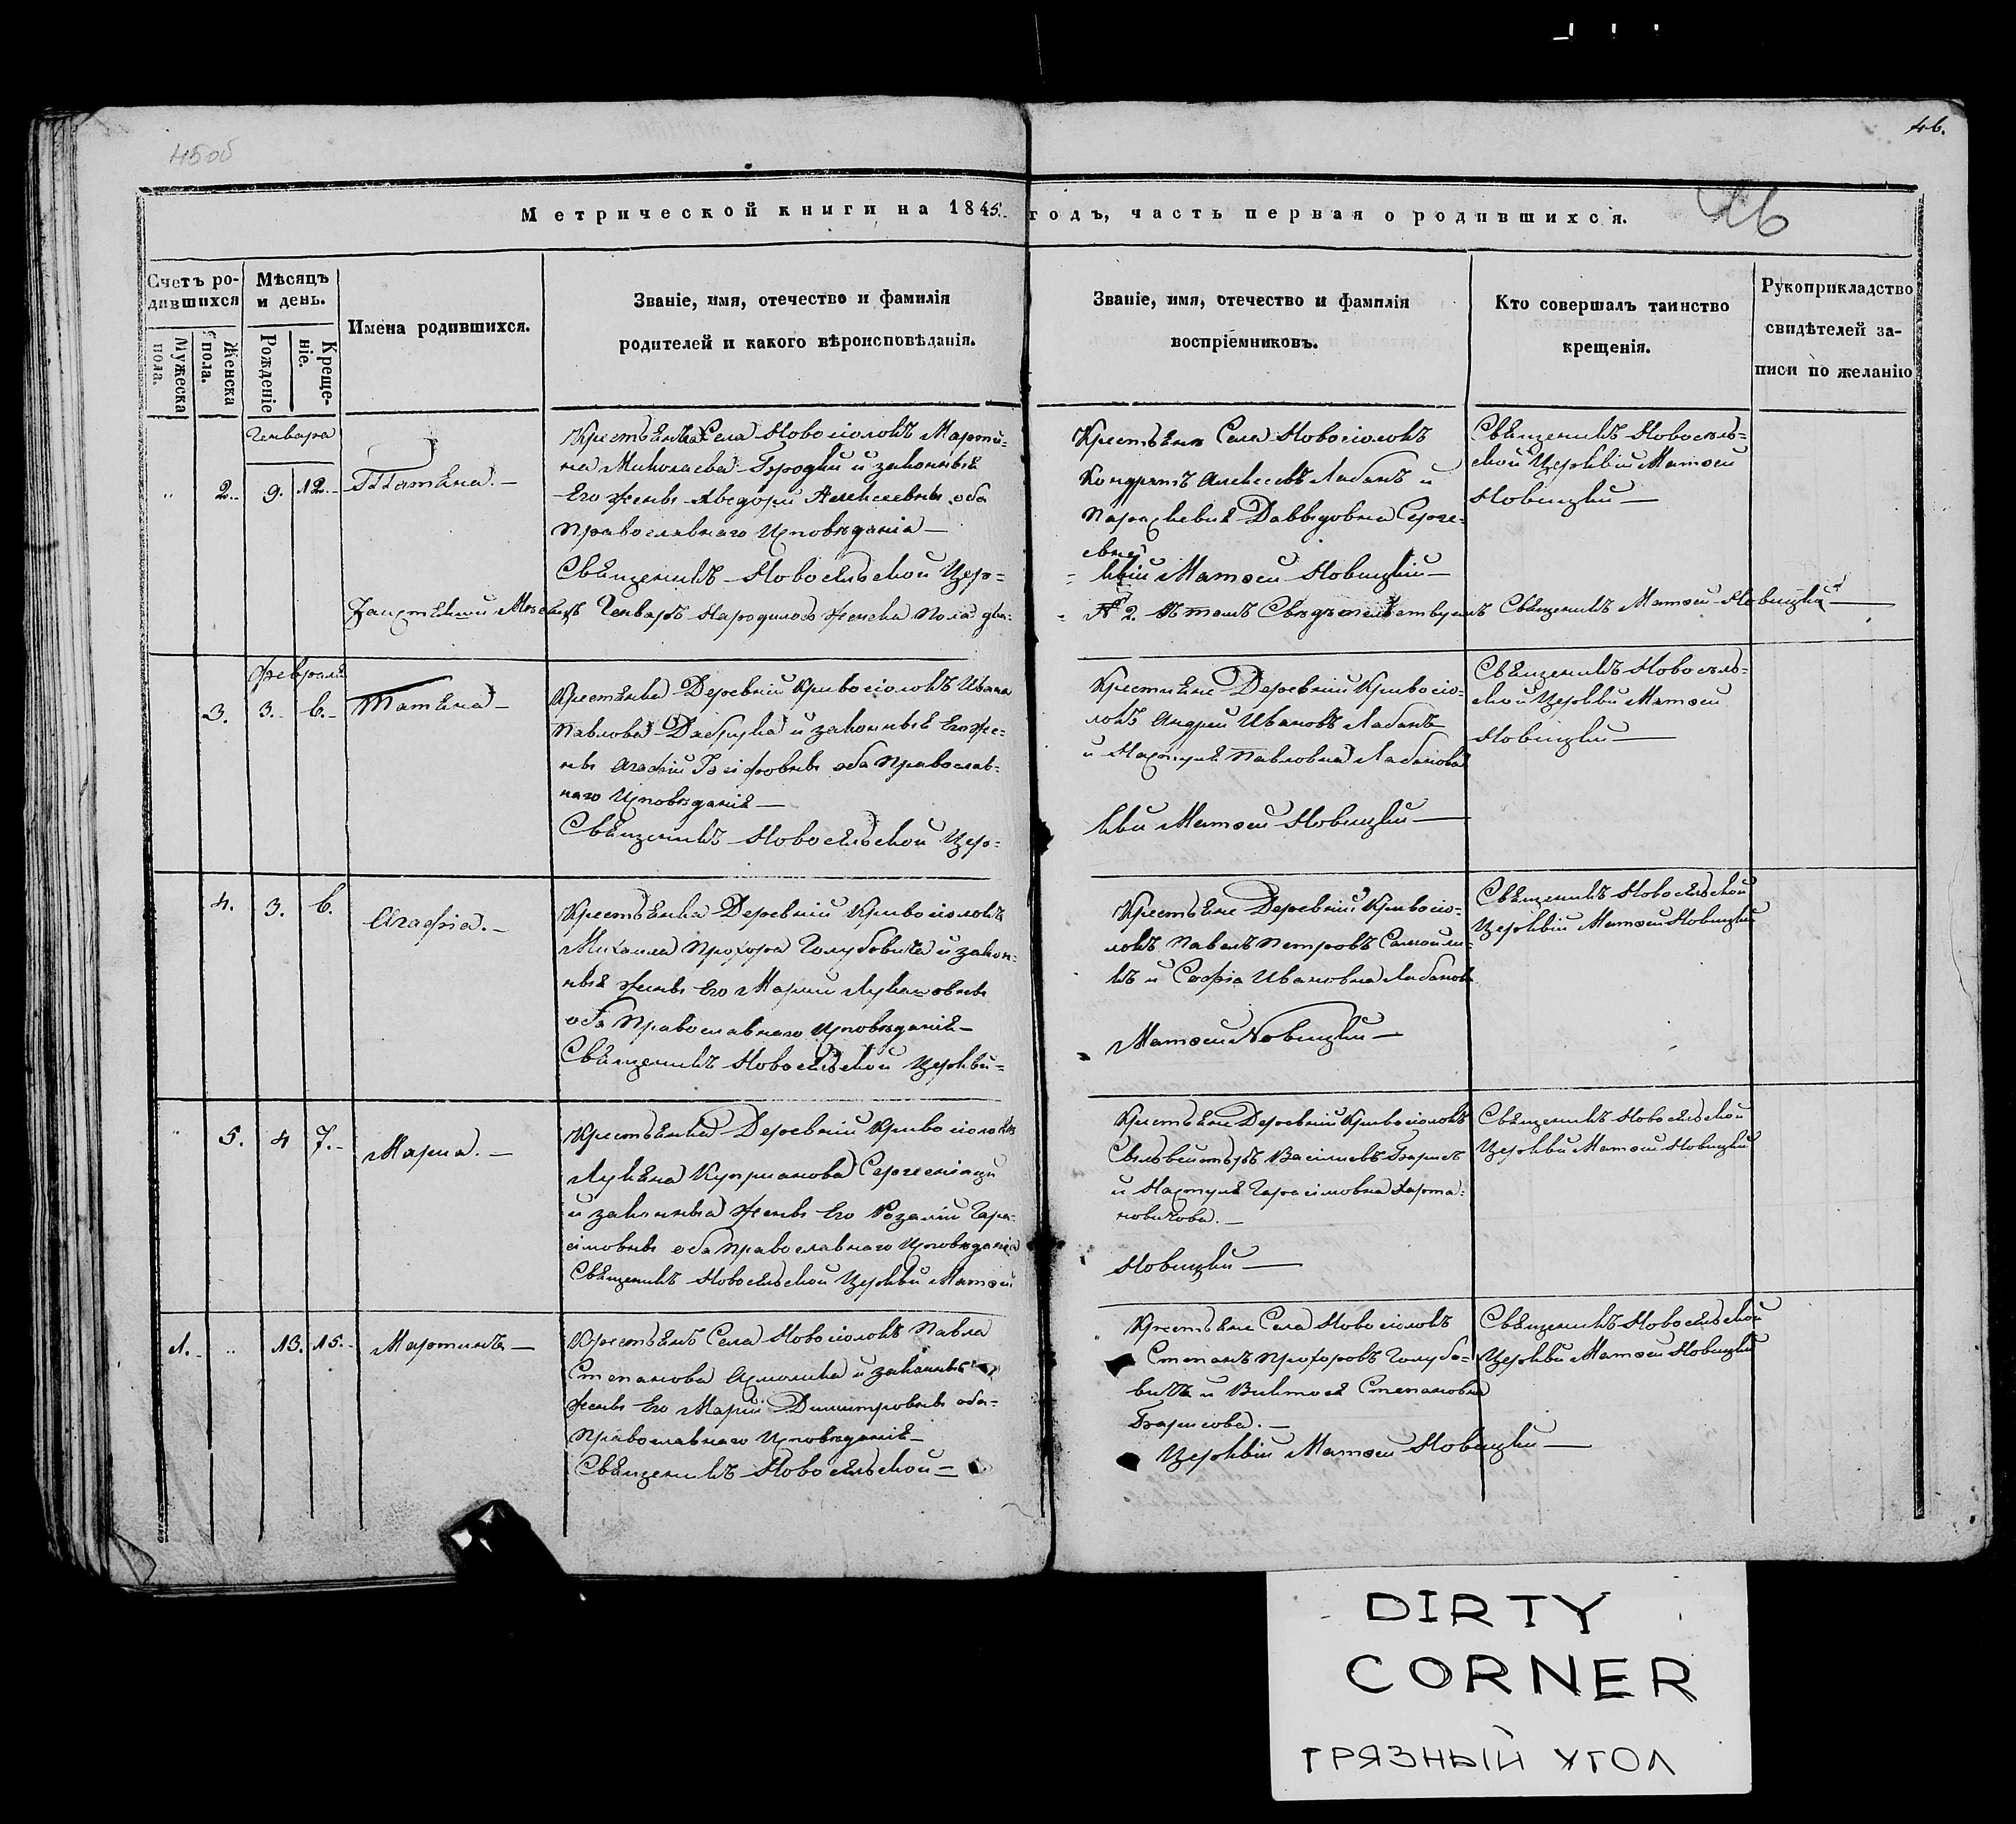 45об
46.
26
Метрической книги на 1845. годъ, часть первая о родившихся.
Счетъ ро-
дившихся
Мѣсяцъ
и день.
Имена родившихся.
Званіе, имя, отечество и фамилія
родителей и какого вѣроисповѣданія.
Званіе, имя, отечество и фамилія
воспріемниковъ.
Кто совершалъ таинство
крещенія.
Рукоприкладство
свидѣтелей за-
писи по желанію
Мужеска
пола.
Женска
пола.
Рожденіе
Креще-
ніе.
Генваря
„ 2. 9. 12. Татіяна. —
Села Новосіолокъ Марти-
на Миколаева Городки и законныя
Его жены Ѳведоры Алексеевны оба
Православнаго Исповѣданія —
Священникъ Новосельской Цер=
Крестьяне Села Новосіолокъ
Кондратъ Алексеевъ Лабанъ и
Параскевія Давыдовна Серге-
евна
= кви Матѳей Новицкій —
Священникъ Новосель=
ской Церквіи Матѳей
Новицкій —
Генварѣ Народилось Женска Пола два=
= № 2. Въ томъ Свѣдетельствуетъ Священникъ Матѳей Новицкій —
Февраля
3. 3. 6. Татіяна —
Крестьянина Деревніи Кривосіолокъ Ивана
Павлова и законныя Его Же-
ны Агафіи Іосіфовны оба Православ-
наго Исповѣданія —
Священникъ Новосельской Цер=
Крестьяне Деревніи Кривосіо-
локъ Андрей Ивановъ Лабанъ
и Настуля Павловна Лабанова
кви Матѳей Новицкій —
Священникъ Новосель=
ской Церкви Матѳей
Новицкій —
4. 3. 6. Агафіа. —
Деревніи Кривосіолокъ
Михаила Прохора Голубовича и закон-
ныя жены Его Маріи Лукаіовны
оба Православнаго Исповѣданія —
Священникъ Новосельской Церкви=
Крестьяне Деревніи Кривосіо-
локъ Павелъ Петровъ Самойли-
къ и Софіа Ивановна Лабанова
Матѳей Новицкій —
Священникъ Новосельской
Церквіи Матѳей Новицкій
" 5. 4 7. Мариа. —
Деревніи Кривосіолокъ
Лукіяна Куприанова
и законныя жены Его Розаліи Гара-
сімовны оба Православнаго Исповѣданія
Священникъ Новосельской Церкви Матѳей
Крестьяне Деревніи Кривосіолокъ
Васильевъ Борисъ
и Настуля Гарасімовна Харта-
новичова. —
Новицкій —
Священникъ Новосельской
Церкви Матѳей Новицкій
1. „ 13. 15. Мартинъ —
Села Новосіолокъ Павла
Степанова и законныя
жены Его Маріи Димитровны оба=
Православнаго Исповѣданія —
Священникъ Новосельской =
Крестьяне Села Новосіолокъ
Степанъ Прохоровъ Голубо=
вичъ и Виктося Степановна
Борисова. —
Церквіи Матѳей Новицкій —
Священникъ Новосельской
Церкви Матѳей Новицкій
DIRTY
CORNER
ГРЯЗНЫЙ УГОЛ